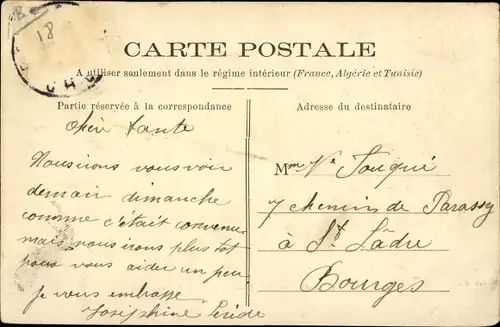 18
CARTE POSTALE
A utiliser seulement dans le régime intérieur (France, Algérie et Tunisie)
Partie réservée à la correspondance
Chère tante
Nous irons vous voir
demain dimanche
comme c'était convenu
mais nous irons plus tot
pour vous aider un peu
Je vous embrasse
Joséphine
Adresse du destinataire
Mme Vve Jouqui
7 chemin de Parassy
à St Ladre
Bourges